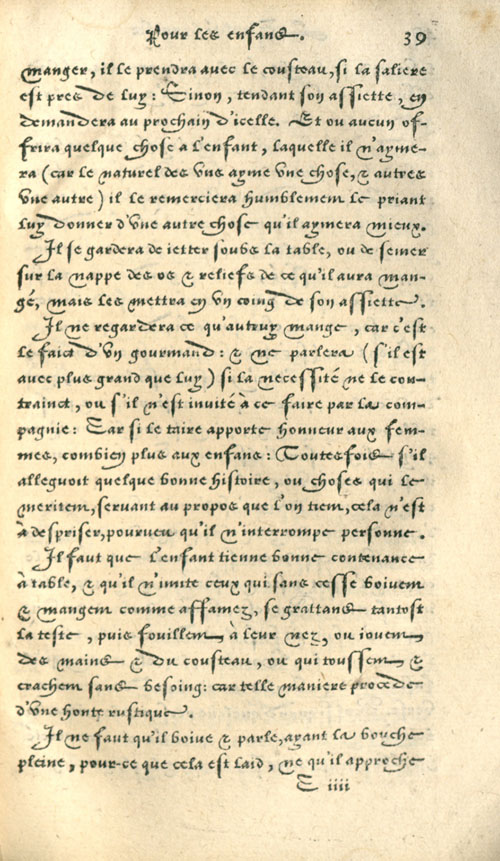 Pour les enfans. 39
manger, il le prendra avec le cousteau, si la saliere
est pres de luy: Sinon, tendant son assiette, en
demandera au prochain d'icelle. Et ou aucun of-
frira quelque chose a l'enfant, laquelle il n'ayme-
ra (car le naturel des vns ayme vne chose, & autres
vne autre) il le remerciera humblement le priant
luy donner d'vne autre chose qu'il aymera mieux.
Il se gardera de ietter soubs la table, ou de semer
sur la nappe des os & reliefs de ce qu'il aura man-
gé, mais les mettra en vn coing de son assiette.
Il ne regardera ce qu'autruy mange, car c'est
le faict d'vn gourmand: & ne parlera (s'il est
avec plus grand que luy) si la necessité ne le con-
trainct, ou s'il n'est invité à ce faire par la com-
pagnie: Car si le taire apporte honneur aux fem-
mes, combien plus aux enfans: Toutesfois s'il
alleguoit quelque bonne histoire, ou choses qui le
meritent, servant au propos que l'on tient, cela n'est
à despriser, pourveu qu'il n'interrompe personne.
Il faut que l'enfant tienne bonne contenance
à table, & qu'il n'imite ceux qui sans cesse boivent
& mangent comme affamez, se grattans tantost
la teste, puis fouillent à leur nez, ou iouent
des mains & du cousteau, ou qui toussent &
crachent sans besoing: car telle maniere procede
d'vne honte rustique.
Il ne faut qu'il boive & parle, ayant la bouche
pleine, pour-ce que cela est laid, ne qu'il approche
C iiii